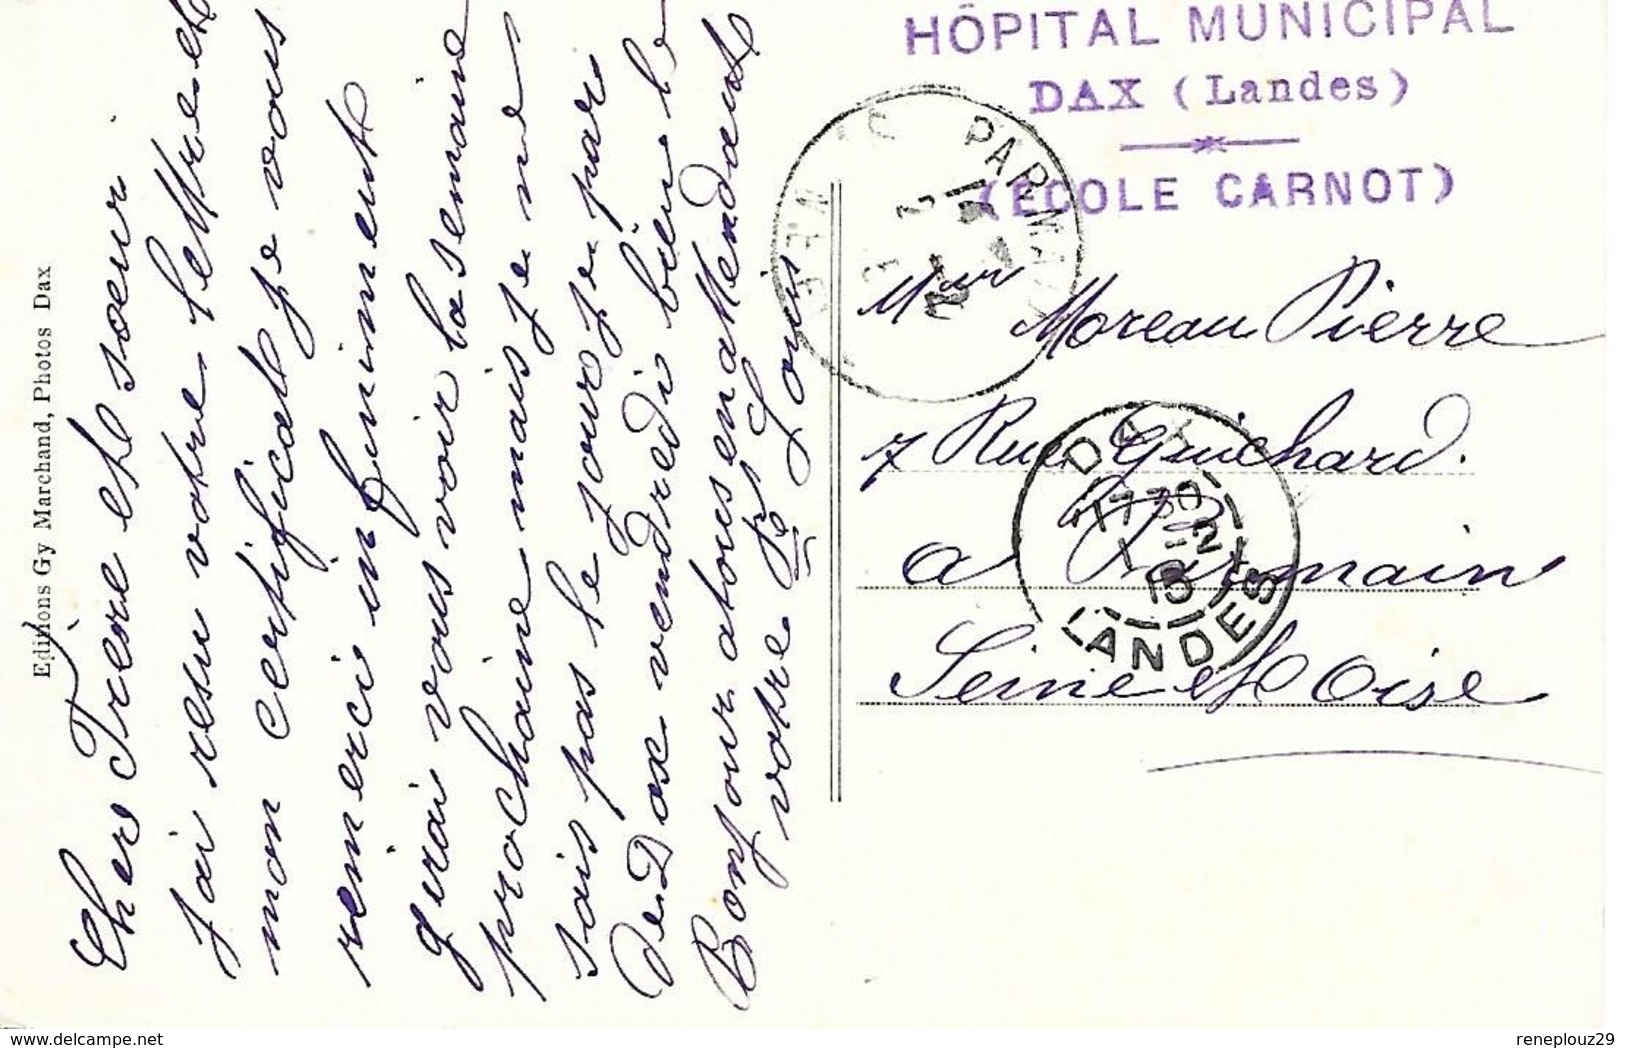 HÔPITAL MUNICIPAL
DAX (Landes)
(ÉCOLE CARNOT)
PARMAIN
Mr Moreau Pierre
7 Rue Guichard.
a Parmain
Seine et Oise
DAX
17 30
LANDES
Editions Gy Marchand, Photos Dax
Cher Frere et soeur
J'ai resu votre lettre et
mon certificat je vous
remerci infiniment
j'irai vous voir la semaine
prochaine mais je ne
sais pas le jour je par
de Dax vendredi bien le
Bonjour a tous en attendant
votre Louis
delcampe.net
reneplouz29